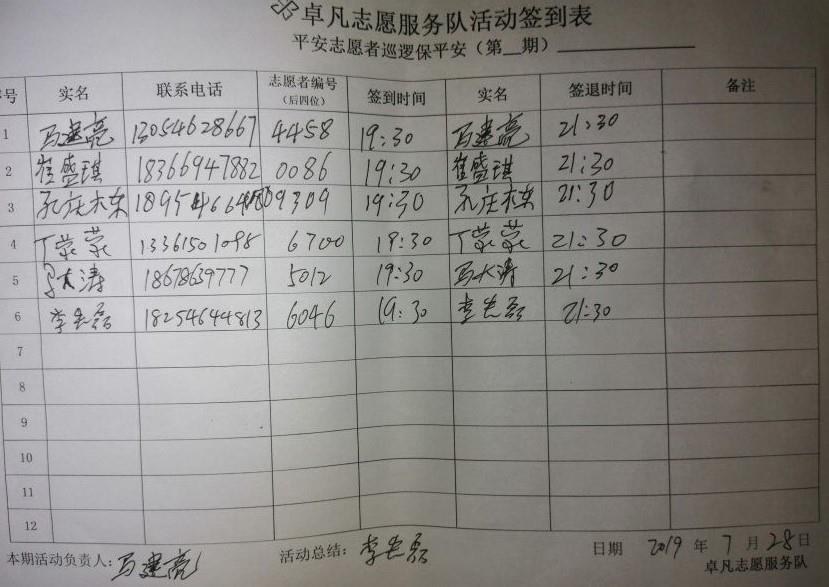 卓凡志愿服务队活动签到表
平安志愿者巡逻保平安（第__期）
序号 实名 联系电话 志愿者编号（后四位） 签到时间 实名 签退时间 备注
1 马建亮 13054628667 4458 19:30 马建亮 21:30
2 崔盛琪 18366947882 0086 19:30 崔盛琪 21:30
3 9309 19:30 21:30
4 丁荣荣 13361501098 6700 19:30 丁荣荣 21:30
5 马大涛 18678639777 5012 19:30 马大涛 21:30
6 李志磊 18254644813 6046 19:30 李志磊 21:30
7
8
9
10
11
12
本期活动负责人：马建亮 活动总结：李志磊 日期 2019 年 7 月 28 日
卓凡志愿服务队